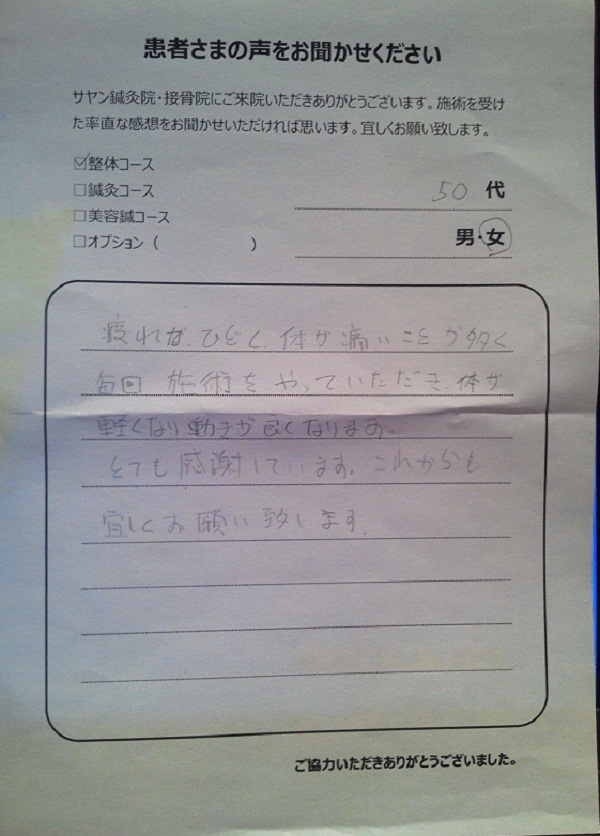 患者さまの声をお聞かせください
サヤン鍼灸院・接骨院にご来院いただきありがとうございます。施術を受け
た率直な感想をお聞かせいただければ思います。宜しくお願い致します。
☑整体コース
□鍼灸コース
50 代
□美容鍼コース
男・女
□オプション（ ）
疲れがひどく、体が痛いことが多く
毎回 施術をやっていただき、体が
軽くなり動きが良くなります。
とても感謝しています。これからも
宜しくお願い致します。
ご協力いただきありがとうございました。